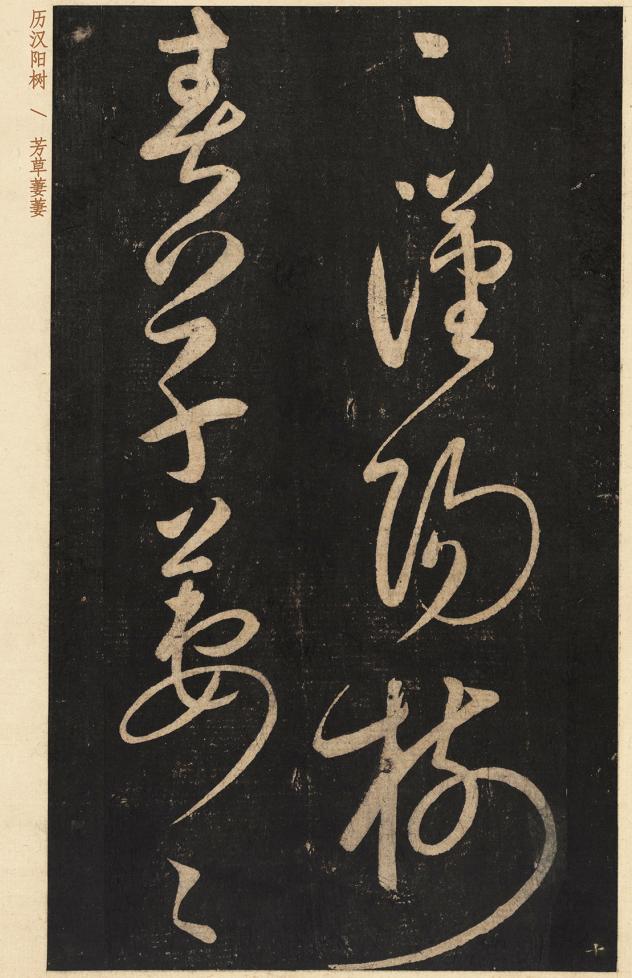 〻漢陽樹
春草萋〻
历汉阳树 / 芳草萋萋
十